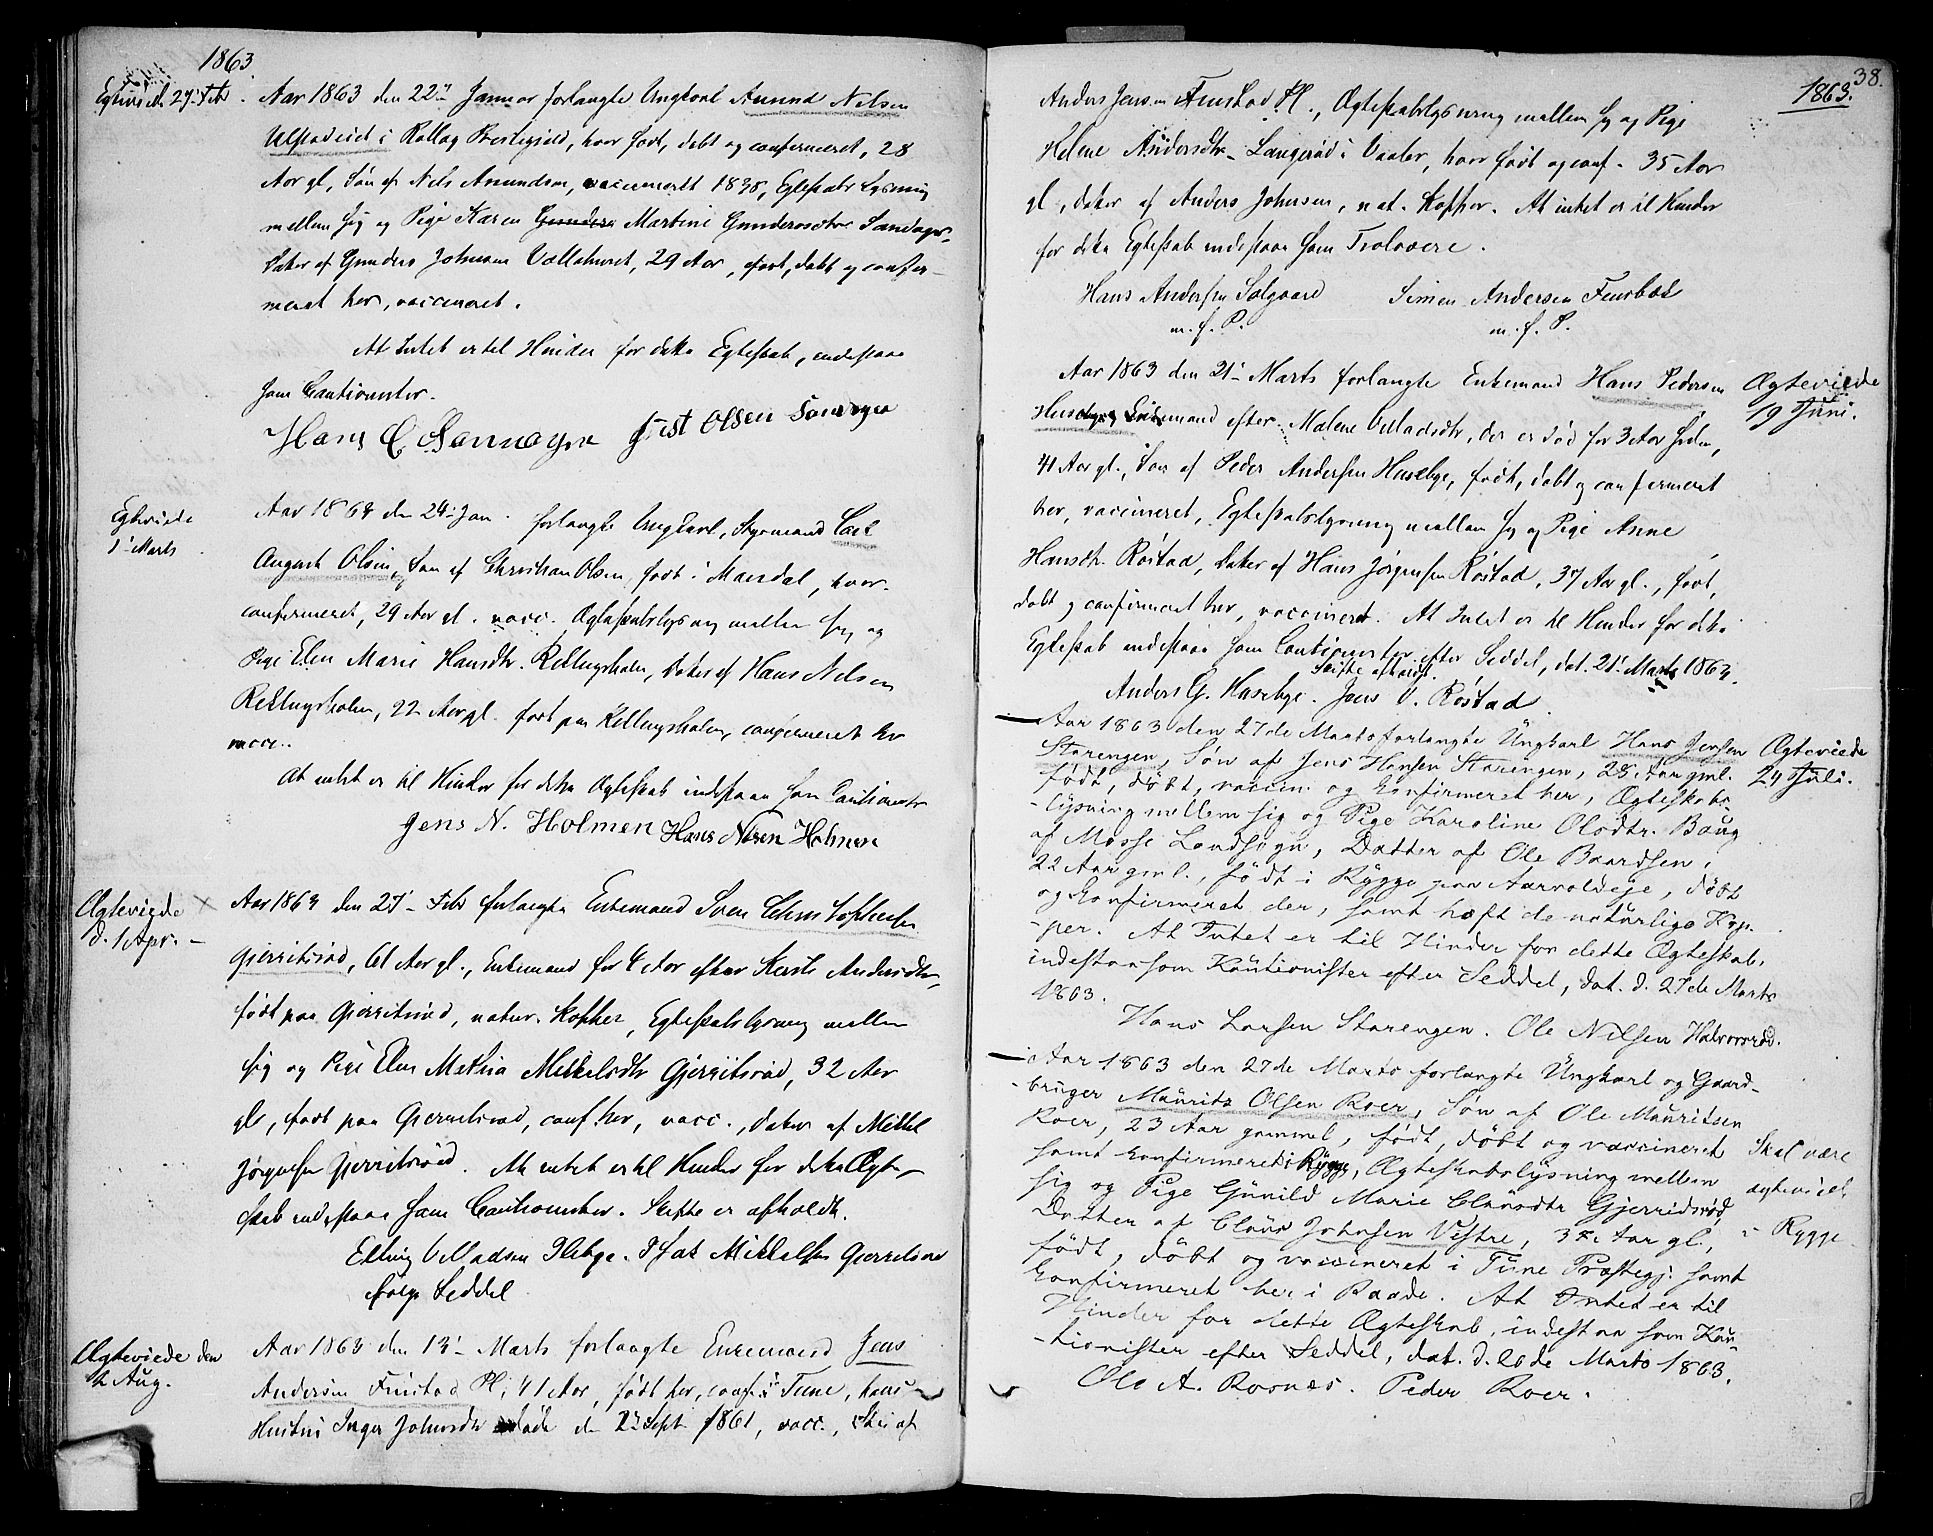 1863
Egteviede 27 Feb.
Aar 1863 den 22n Januar forlangte Ungkarl Amund Nilsen
i Rollag Præstegield, hvor født, døbt og confirmeret, 28
Aar gl, Søn af Nils Amundsen, vaccineret 1838, Egteskabs Lysning
mellem sig og Pige Karen Martine Gundersdtr
Datter af Gunders Johnsen 29 Aar, født, døbt og confir-
meret her, vaccineret.
At Intet er til Hinder for dette Egteskab, indestaae
som Cautionister.
Hans C. Olsen
Egteviede
1 Marts
Aar 1863 den 24 Jan. forlangte Ungkarl, Styrmand Carl
August Olsen, Søn af Christian Olsen, født i Mandal, hvor
confirmeret, 29 Aar gl. vacc. Ægteskabslysning mellem sig og
Pige Elen Marie Hansdtr. Rellingsholm, Datter af Hans Nilsen
Rellingsholm, 22 Aar gl. født paa Rellingsholm, confirmeret her
vacc..
At intet er til Hinder for dette Ægteskab indestaae som Cautionister
Jens N. Holmen Hans Nilsen Holmen
Ægteviede
d. 1 Apr.
Aar 1863 den 27 Feb forlangte Enkemand
Gjerritsrød, 61 Aar gl., Enkemand for 4 Aar efter Kersti Andersdtr,
født paa Gjerritsrød, natur. Kopper, Egteskabslysning mellem
sig og Pige Elen Mathia Mikkelsdtr Gjerritsrød, 32 Aar
gl, født paa Gjerritsrød, conf. her, vacc., Datter af Mikkel
Jørgensen Gjerritsrød. At intet er til Hinder for dette Ægte-
skab indestaae som Cautionister. Skifte er afholdt.
Elling Mikkelsen Gjerritsrød
ifølge Seddel
Ægteviede den
2 Aug.
Aar 1863 den 13 Marts forlangte Enkemand Jens
Andersen Finstad Pl, 41 Aar, født her, conf. i Tune, hans
Hustru Inger Johnsdtr døde den 2 Sept 1861, vacc., Søn af
38.
1863.
Anders Jensen Finstad Pl., Ægteskabslysning mellem sig og Pige
Helene Andersdtr. Langerød i Vaaler, hvor født og conf. 35 Aar
gl, Datter af Anders Johnsen, nat. Kopper. At intet er til Hinder
for dette Egteskab indestaae som Trolovere.
Hans Andersen Solgaard Simen Andersen
m. f. P. m. f. P.
Aar 1863 den 21 Marts forlangte Enkemand Hans Pedersen
Husebye Enkemand efter Malene der er død for 3 Aar siden,
41 Aar gl., Søn af Peder Andersen Husebye, født, døbt og confirmeret
her, vaccineret, Egteskabslysning mellem sig og Pige Anne
Hansdtr. Rostad, Datter af Hans Jørgensen Rostad, 37 Aar gl., født,
døbt og confirmeret her, vaccineret. At Intet er til Hinder for dette
Egteskab indestaae som Cautionister efter Seddel, dat. 21 Marts 1863.
Skifte afholdt.
Anders G. Husebye. Jens Rostad.
Ægteviede
19 Juni.
Aar 1863 den 27de Marts forlangte Ungkarl Hans Jensen
Starengen, Søn af Jens Hansen Starengen, 28 Aar gml.
født, døbt, vaccin. og konfirmeret her, Ægteskabs-
lysning mellem sig og Pige Karoline Olsdtr. Baug
af Mosse Landsogn, Datter af Ole Baardsen,
22 Aar gml., født i Rygge paa Aarvoldeje, døbt
og konfirmeret der, samt haft de naturlige Kop-
per. At Intet er til Hinder for dette Ægteskab,
indestaa som Kautionister efter Seddel, dat. d. 27de Marts
1863.
Hans Larsen Starengen. Ole Nilsen Halvorsrød.
Ægteviede
24 Juli.
Aar 1863 den 27de Marts forlangte Ungkarl og Gaard-
bruger Mauritz Olsen Roer, Søn af Ole Mauritsen
Roer, 23 Aar gammel, født, døbt og vaccineret
samt konfirmeret i Rygge, Ægteskabslysning mellem
sig og Pige Gunild Marie Clausdtr Gjerridsrød,
Datter af Claus Johnsen Vestre, Aar gl.,
født, døbt og vaccineret i Tune Præstegj. samt
konfirmeret her i Raade. At Intet er til
Hinder for dette Ægteskab, indestaa som Kau-
tionister efter Seddel, dat. d. 26de Marts 1863.
Ole A. Rosnæs. Peder Roer.
Skal være
ægteviede
i Rygge